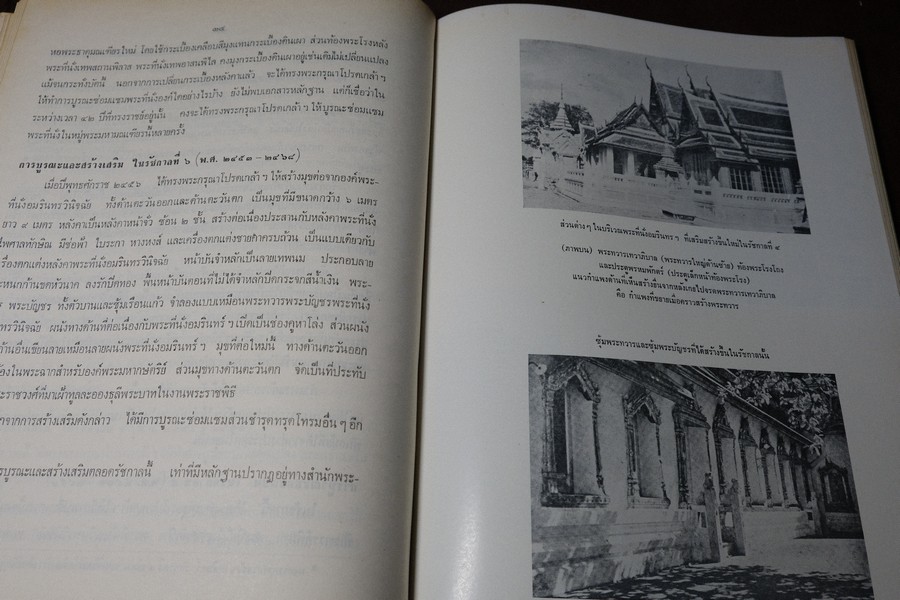 ๓๔
หอพระธาตุมณเฑียรใหม่ โดยใช้กระเบื้องเคลือบสีมุงแทนกระเบื้องดินเผา ส่วนท้องพระโรงหลัง
พระที่นั่งเทพสถานพิลาส พระที่นั่งเทพอาสนพิไล คงมุงกระเบื้องดินเผาอยู่เช่นเดิมไม่เปลี่ยนแปลง
แม้จนกระทั่งบัดนี้ นอกจากการเปลี่ยนกระเบื้องหลังคาแล้ว จะได้ทรงพระกรุณาโปรดเกล้า ฯ
ให้ทำการบูรณะซ่อมแซมพระที่นั่งองค์ใดอย่างไรบ้าง ยังไม่พบเอกสารหลักฐาน แต่ก็เชื่อว่าใน
ระหว่างเวลา ๔๒ ปีที่ทรงราชย์อยู่นั้น คงจะได้ทรงพระกรุณาโปรดเกล้า ฯ ให้บูรณะซ่อมแซม
พระที่นั่งในหมู่พระมหามณเฑียรนี้หลายครั้ง
การบูรณะและสร้างเสริม ในรัชกาลที่ ๖ (พ.ศ. ๒๔๕๓ – ๒๔๖๘)
เมื่อปีพุทธศักราช ๒๔๕๖ ได้ทรงพระกรุณาโปรดเกล้า ฯ ให้สร้างมุขต่อจากองค์พระ-
ที่นั่งอมรินทรวินิจฉัย ทั้งด้านตะวันออกและด้านตะวันตก เป็นมุขที่มีขนาดกว้าง ๖ เมตร
ยาว ๙ เมตร หลังคาเป็นหลังคาหน้าจั่ว ซ้อน ๒ ชั้น สร้างต่อเนื่องประสานกับหลังคาพระที่นั่ง
ไพศาลทักษิณ มีช่อฟ้า ใบระกา หางหงส์ และเครื่องตกแต่งชายคาครบถ้วน เป็นแบบเดียวกับ
เครื่องตกแต่งหลังคาพระที่นั่งอมรินทรวินิจฉัย หน้าบันจำหลักเป็นลายเทพนม ประกอบลาย
กระหนกก้านขดหัวนาค ลงรักปิดทอง พื้นหน้าบันตอนที่ไม่ได้จำหลักก็ดกระจกสีน้ำเงิน พระ-
พระบัญชร ทั้งตัวบานและซุ้มเรือนแก้ว จำลองแบบเหมือนพระทวารพระบัญชรพระที่นั่ง
ทรวินิจฉัย ผนังทางด้านที่ต่อเนื่องกับพระที่นั่งอมรินทร์ ฯ เปิดเป็นช่องคูหาโล่ง ส่วนผนัง
ด้านอื่นเขียนลายเหมือนลายผนังพระที่นั่งอมรินทร์ ฯ มุขที่ต่อใหม่นี้ ทางด้านตะวันออก
ในพระฉากสำหรับองค์พระมหากษัตริย์ ส่วนมุขทางด้านตะวันตก จัดเป็นที่ประทับ
ราชวงศ์ที่มาเฝ้าทูลละอองธุลีพระบาทในงานพระราชพิธี
จากการสร้างเสริมดังกล่าว ได้มีการบูรณะซ่อมแซมส่วนชำรุดทรุดโทรมอื่น ๆ อีก
บูรณะและสร้างเสริมตลอดรัชกาลนี้ เท่าที่มีหลักฐานปรากฏอยู่ทางสำนักพระ-
ส่วนต่าง ๆ ในบริเวณพระที่นั่งอมรินทร ฯ ที่เสริมสร้างขึ้นใหม่ในรัชกาลที่ ๔
(ภาพบน) พระทวารเทวาภิบาล (พระทวารใหญ่ด้านซ้าย) ท้องพระโรงโถง
และประตูพรหมพักตร์ (ประตูเล็กหน้าท้องพระโรง)
แนวกำแพงด้านที่เห็นสร้างยื่นจากหลังเก๋งไปจรดพระทวารเทวาภิบาล
คือ กำแพงที่รายเมื่อคราวสร้างพระทวาร
ซุ้มพระทวารและซุ้มพระบัญชรที่ได้สร้างขึ้นในรัชกาลนั้น